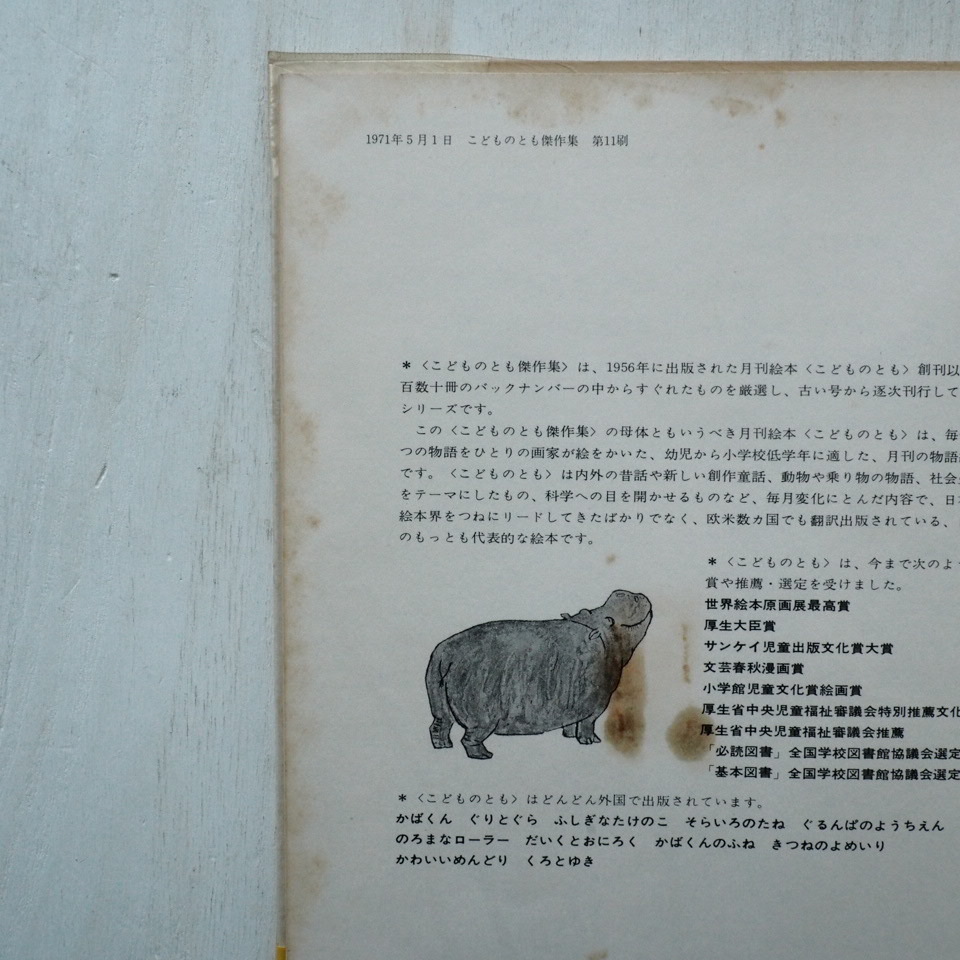 1971年5月1日 こどものとも傑作集 第11刷
＊〈こどものとも傑作集〉は、1956年に出版された月刊絵本〈こどものとも〉創刊以
百数十冊のバックナンバーの中からすぐれたものを厳選し、古い号から逐次刊行して
シリーズです。
この〈こどものとも傑作集〉の母体ともいうべき月刊絵本〈こどものとも〉は、毎
つの物語をひとりの画家が絵をかいた、幼児から小学校低学年に適した、月刊の物語
です。〈こどものとも〉は内外の昔話や新しい創作童話、動物や乗り物の物語、社会
をテーマにしたもの、科学への目を開かせるものなど、毎月変化にとんだ内容で、日
絵本界をつねにリードしてきたばかりでなく、欧米数カ国でも翻訳出版されている、
のもっとも代表的な絵本です。
＊〈こどものとも〉は、今まで次のよ
賞や推薦・選定を受けました。
世界絵本原画展最高賞
厚生大臣賞
サンケイ児童出版文化賞大賞
文芸春秋漫画賞
小学館児童文化賞絵画賞
厚生省中央児童福祉審議会特別推薦文化
厚生省中央児童福祉審議会推薦
「必読図書」全国学校図書館協議会選定
「基本図書」全国学校図書館協議会選定
＊〈こどものとも〉はどんどん外国で出版されています。
かばくん ぐりとぐら ふしぎなたけのこ そらいろのたね ぐるんぱのようちえん
のろまなローラー だいくとおにろく かばくんのふね きつねのよめいり
かわいいめんどり くろとゆき